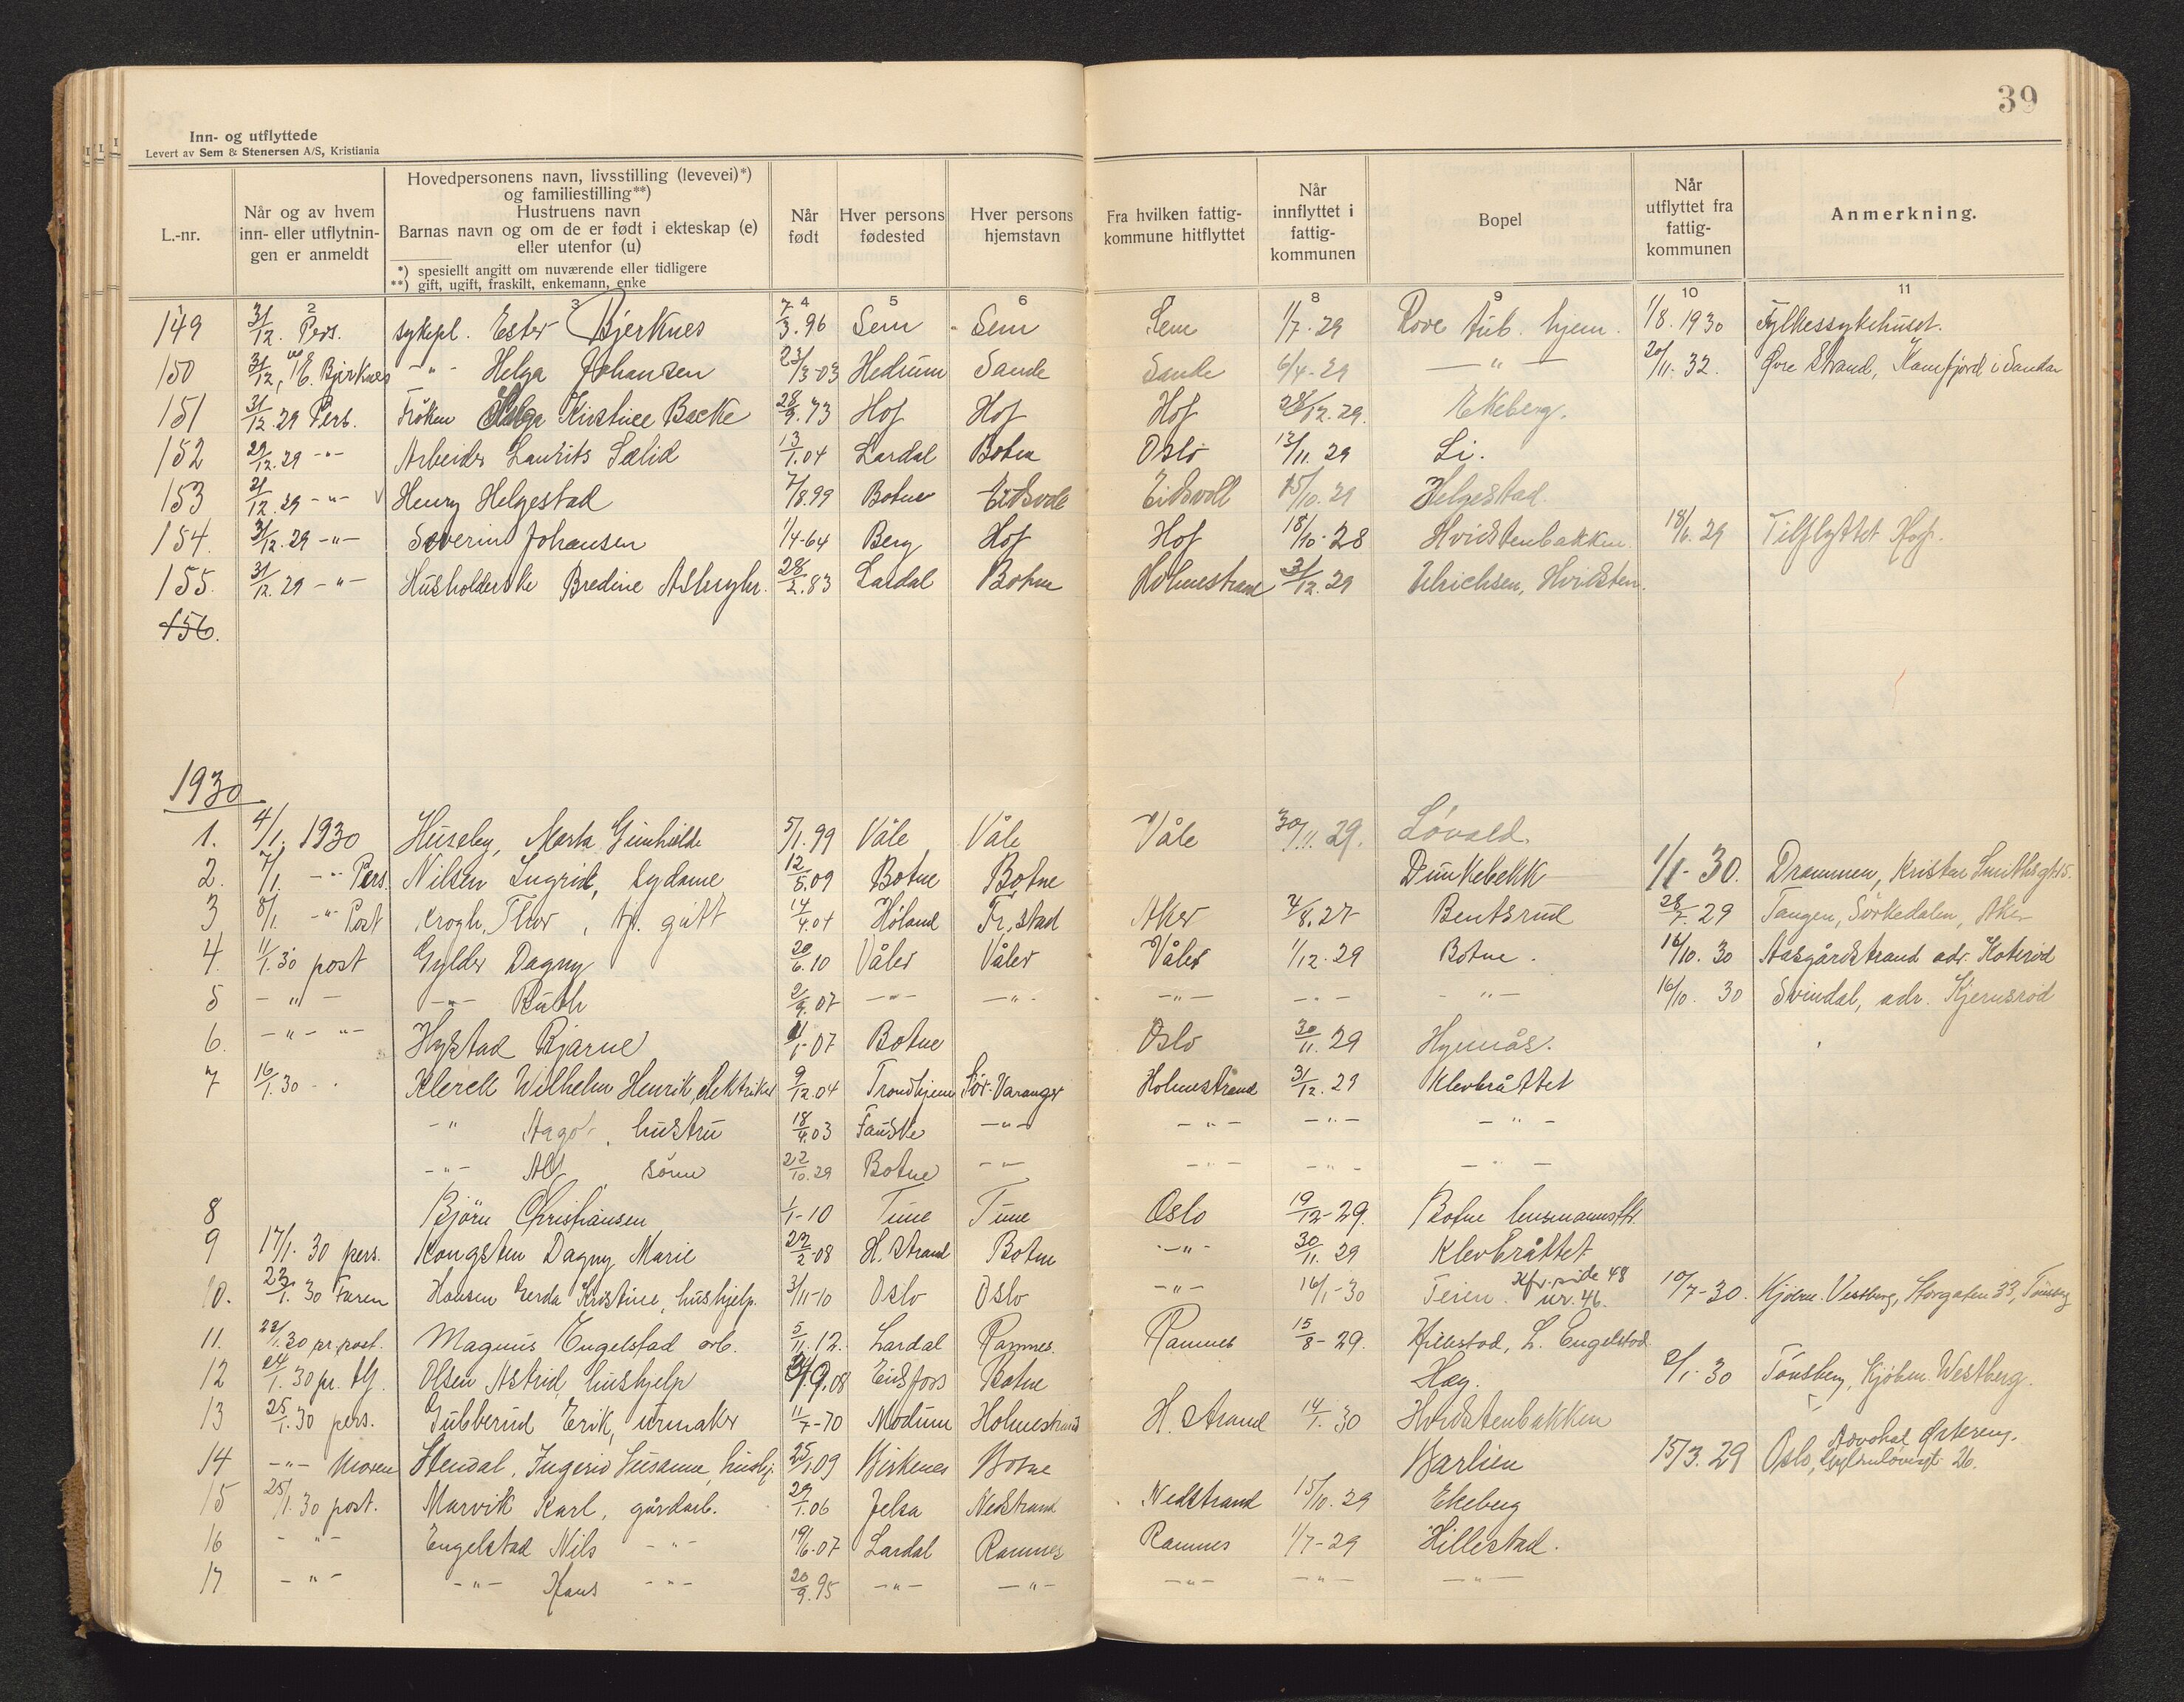 39
Inn- og utflyttede
Levert av Sem & Stenersen A/S, Kristiania
L.-nr.
Når og av hvem inn- eller utflytnin- gen er anmeldt
Hovedpersonens navn, livsstilling (levevei)*) og familiestilling**) Hustruens navn Barnas navn og om de er født i ekteskap (e) eller utenfor (u)
*) spesiellt angitt om nuværende eller tidligere
**) gift, ugift, fraskilt, enkemann, enke
Når født
Hver persons fødested
Hver persons hjemstavn
Fra hvilken fattig- kommune hitflyttet
Når innflyttet i fattig- kommunen
Bopel
Når utflyttet fra fattig- kommunen
Anmerkning.
2 3 4 5 6 8 9 10 11
149 31/12. Pers. sykepl. Ester Bjerknes 7/3.96 Sem Sem Sem 1/7.29 Rove tub. hjem. 1/8.1930 Fylkessykehuset.
150 31/12, E. Bjerknes -"- Helga Johansen 23/3-03 Hedrum Sande Sande 6/4-29 -"- 20/11.32. Øvre Strand, Kamfjord i Sandar
151 31/12.29 Pers. Frøken Helga Kristine Backe 28/9.73 Hof Hof Hof 28/12.29. Ekeberg.
152 29/12.29 -"- Arbeider Laurits Sælid 13/1.04 Lardal Botne Oslo 13/11.29 Li.
153 21/12.29 -"- Henry Helgestad 7/8.99 Botne Eidsvoll Eidsvoll 15/10.29 Helgestad.
154. 31/12.29 -"- Severin Johansen 1/4-64 Berg Hof Hof 18/10-28 Hvidstenbakken. 18/6.29 Tilflyttet Hof.
155. 31/12.29 -"- Husholderske Bredine 28/2.83 Lardal Botne Holmestrand 31/12.29 Ulrichsen, Hvidsten.
156.
1930
1. 4/1.1930 Huseby, Marta Gunhilde 5/1.99 Våle Våle Våle 30/11.29. Løvald.
2. 7/1. -"- Pers. Nilsen Ingrid, sydame 12/5.09 Botne Botne Dunkebekk 1/1-30. Drammen, Kristen Smithsgt 5.
3 8/1. -"- Post Krogh, Thor, tj. gutt 14/4.04 Høland Fr.stad Aker 4/8.27 Bentsrud 28/7.29 Tangen, Sørkedalen, Aker
4. 11/1.30 post Gylder Dagny 20/6.10 Våler Våler Våler 1/12.29 Botne. 16/10.30 Aasgårdstrand adr. Koterød
5 -"- -"- Ruth 2/9.07 -"- -"- -"- -"- -"- 16/10.30 Svindal, adr. Kjernsrød
6. -"- -"- Hystad Bjarne 11/1-07 Botne Oslo 30/11.29
7 16/1.30 -"- Klerck Wilhelm Henrik, elektriker 9/12.04 Trondhjem Sør-Varanger Holmestrand 31/12.29 Klevbråttet
-"- Aagot, hustru 18/4.03 Fauske -"- -"- -"- -"-
-"- Alf, sønn 22/10.29 Botne -"- -"- -"- -"-
8 Bjørn Christiansen 1/1-10 Tune Tune Oslo 19/12-29. Botne
9 17/1.30 pers. Kongsten Dagny Marie 22/2-08 H.strand Botne -"- 30/11.29 Klevbråttet
10. 23/1.30 Faren Hansen Gerda Kristine, hushjelp. 3/11-10 Oslo Oslo -"- 16/1-30 Teien. Kfr. side 48 nr. 46. 10/7-30. Kjøbm. Vestberg, Storgaten 33, Tønsberg
11. 23/1.30 pr. post. Magnus Engelstad arb. 5/11.12. Lardal Ramnes. Ramnes 15/8-29. Hillestad, L. Engelstad
12 24/1.30 pr. tlf. Olsen Astrid, hushjelp 9.08 Eidsfoss Botne Hag. 2/1-30 Tønsberg, Kjøbm. Westberg.
13 25/1.30 pers. Gubberud Erik, urmaker 11/7-70 Modum Holmestrand H. strand 14/1.30 Hvidstenbakken
14 -"- Moren Stendal, Ingerid Susanne, hushj. 25/1.09 Birkenes Botne Barlien 15/3.29 Oslo, Advokat Østereng, Gyldenløvesgt 26.
15 25/1.30 post. Marvik Karl, gårdarb. 29/1.06 Jelsa Nedstrand Nedstrand 15/10.29 Ekeberg
16 -"- Engelstad Nils -"- 19/6-07 Lardal Ramnes Ramnes 1/7-29 Hillestad.
17 -"- -"- Hans -"- 20/9.95 -"- -"- -"- -"- -"-